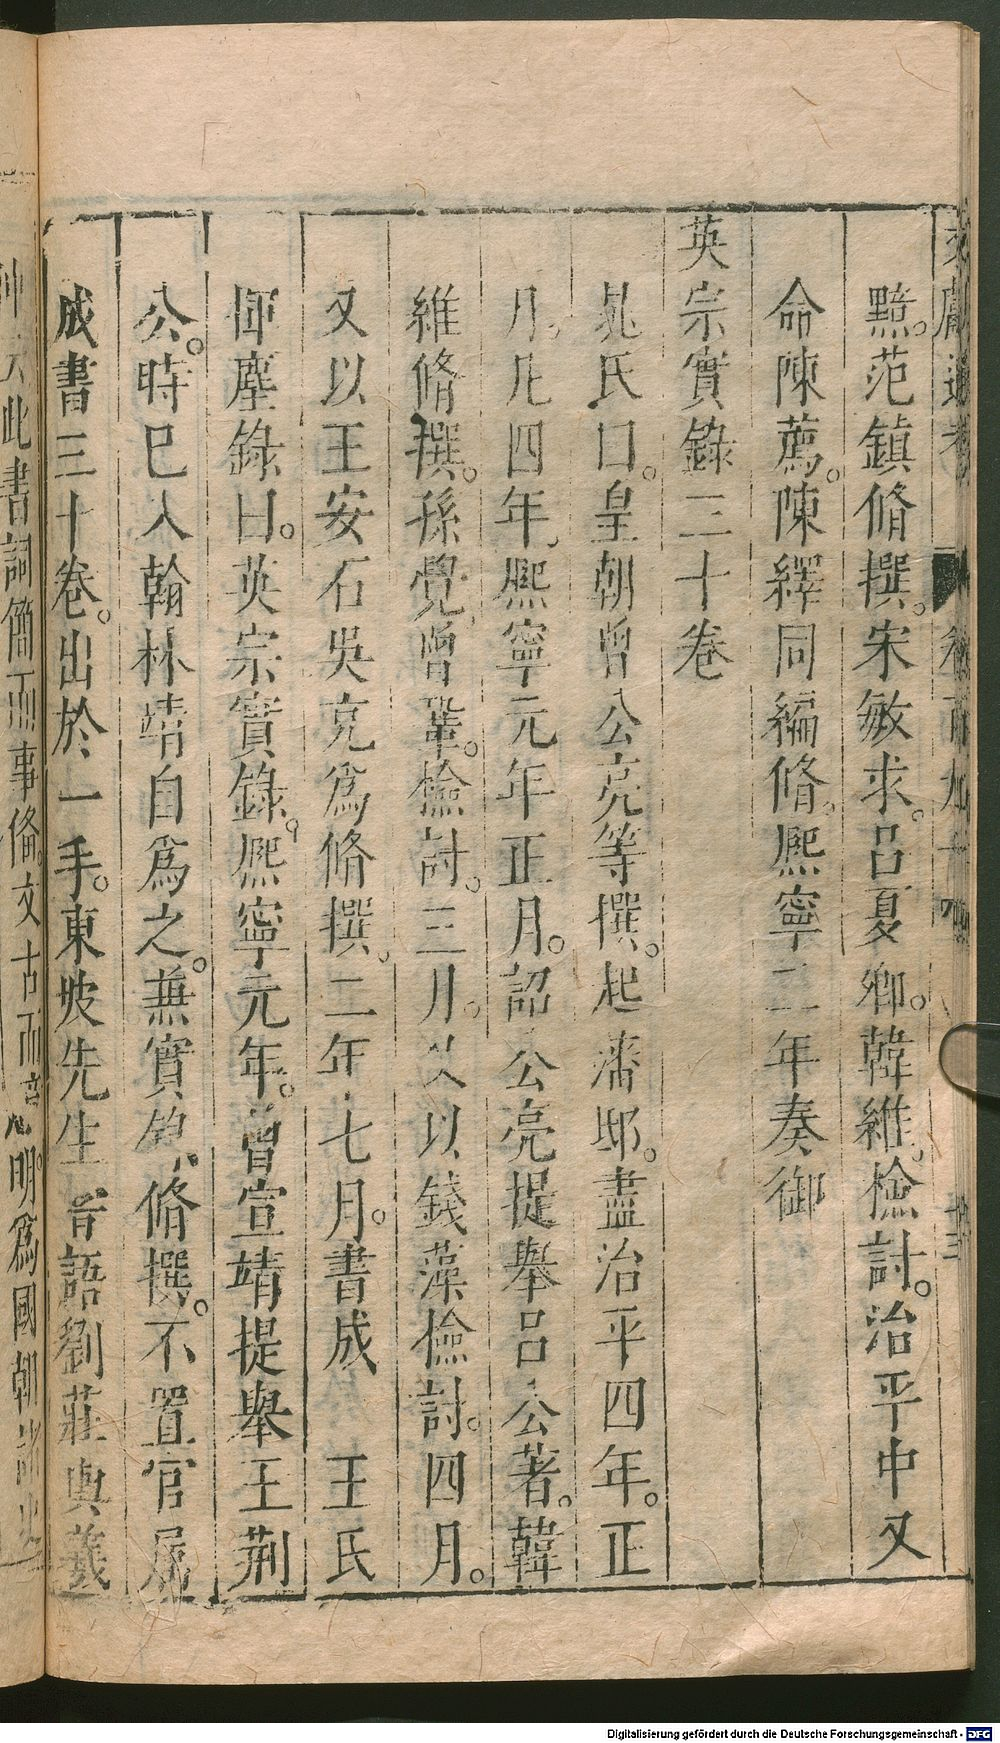 文獻通考 卷一百九十四 十三
黯。范鎮脩撰。宋敏求。呂夏卿。韓維。檢討。治平中又
命陳薦。陳繹同編脩。熈寧二年奏御
英宗實錄三十卷
晁氏曰。皇朝曾公亮等撰。起潘邸。盡治平四年。正
月。凡四年。熈寧元年正月。詔公亮提舉呂公著。韓
維脩撰。孫覺。曾鞏。檢討。三月。又以錢藻儉討。四月。
又以王安石吳充爲脩撰。二年七月。書成 王氏
揮塵錄曰。英宗實錄。熈寧元年。曾宣靖提舉王荆
公。時巳入翰林靖自爲之。兼實錄脩撰。不置官屬
成書三十卷。出於一手。東坡先生 語劉莊輿羲
此書詞簡而事俻。文古而 明。爲國朝諸史
Digitalisierung gefördert durch die Deutsche Forschungsgemeinschaft - DFG